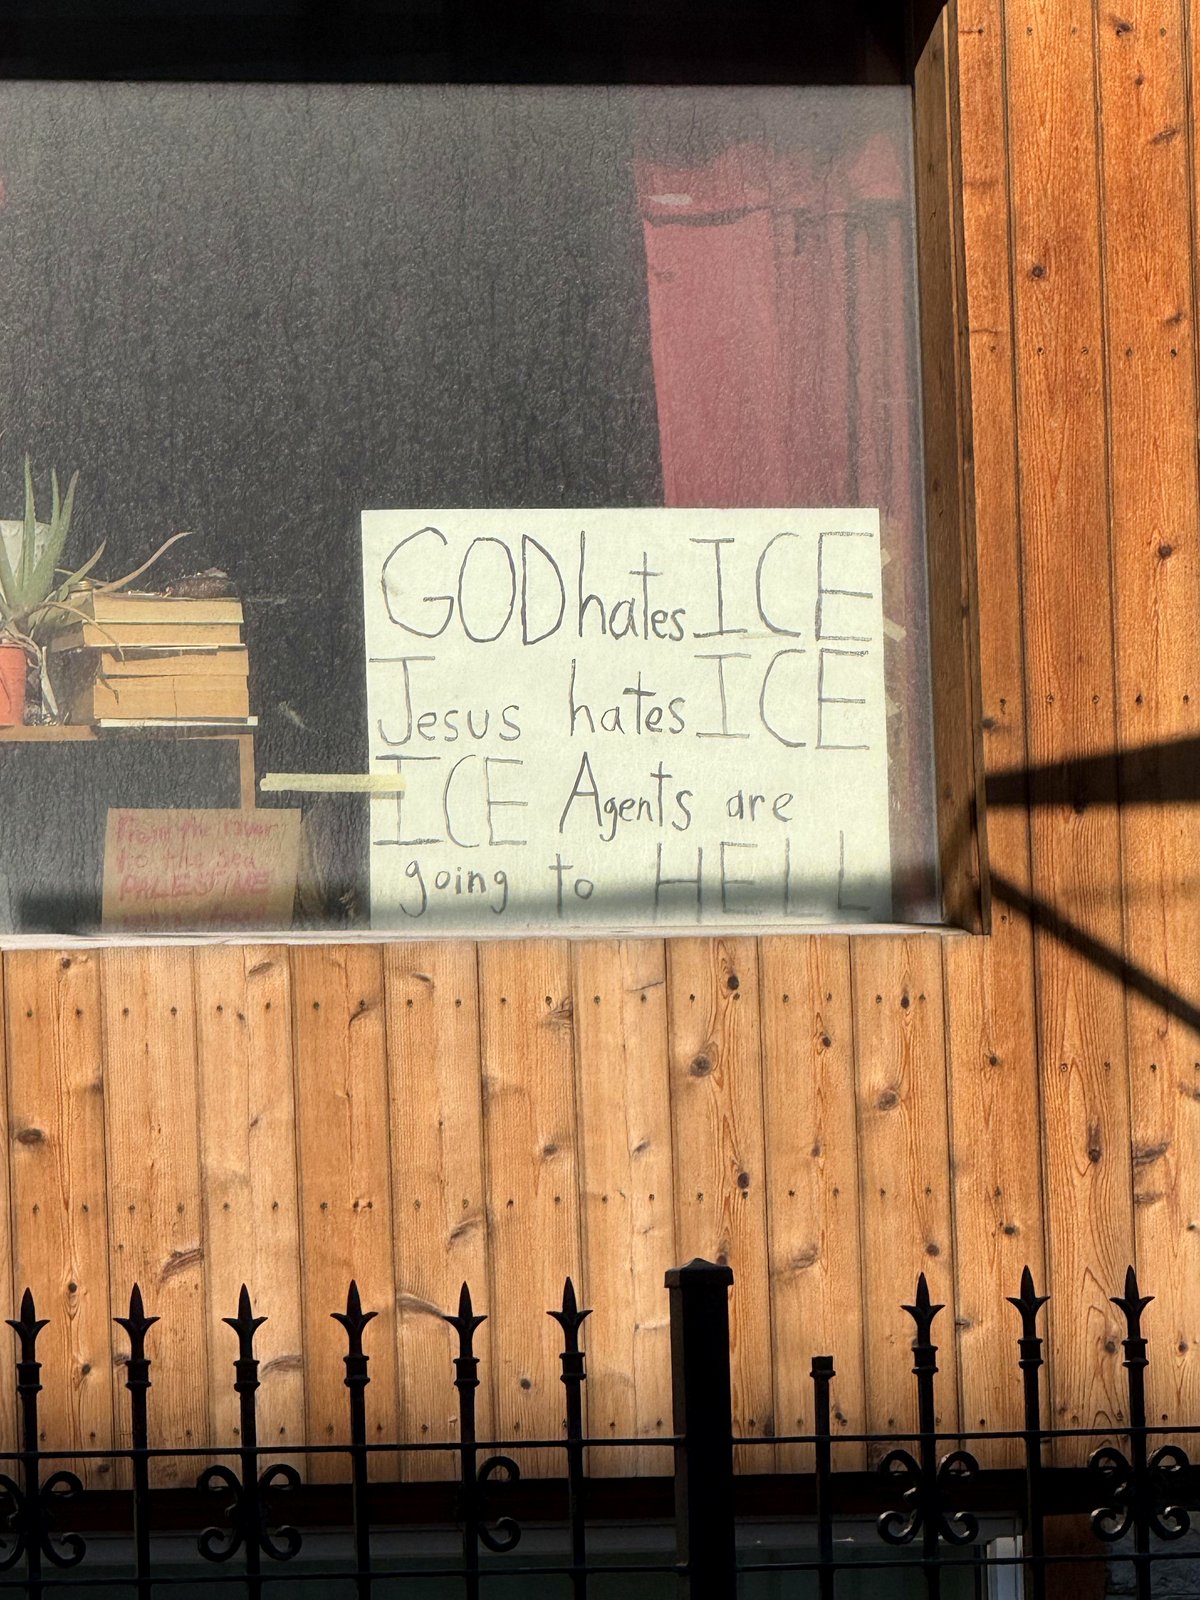 GOD hates ICE
Jesus hates ICE
ICE Agents are
going to HELL
From the river
to the sea
PALESTINE